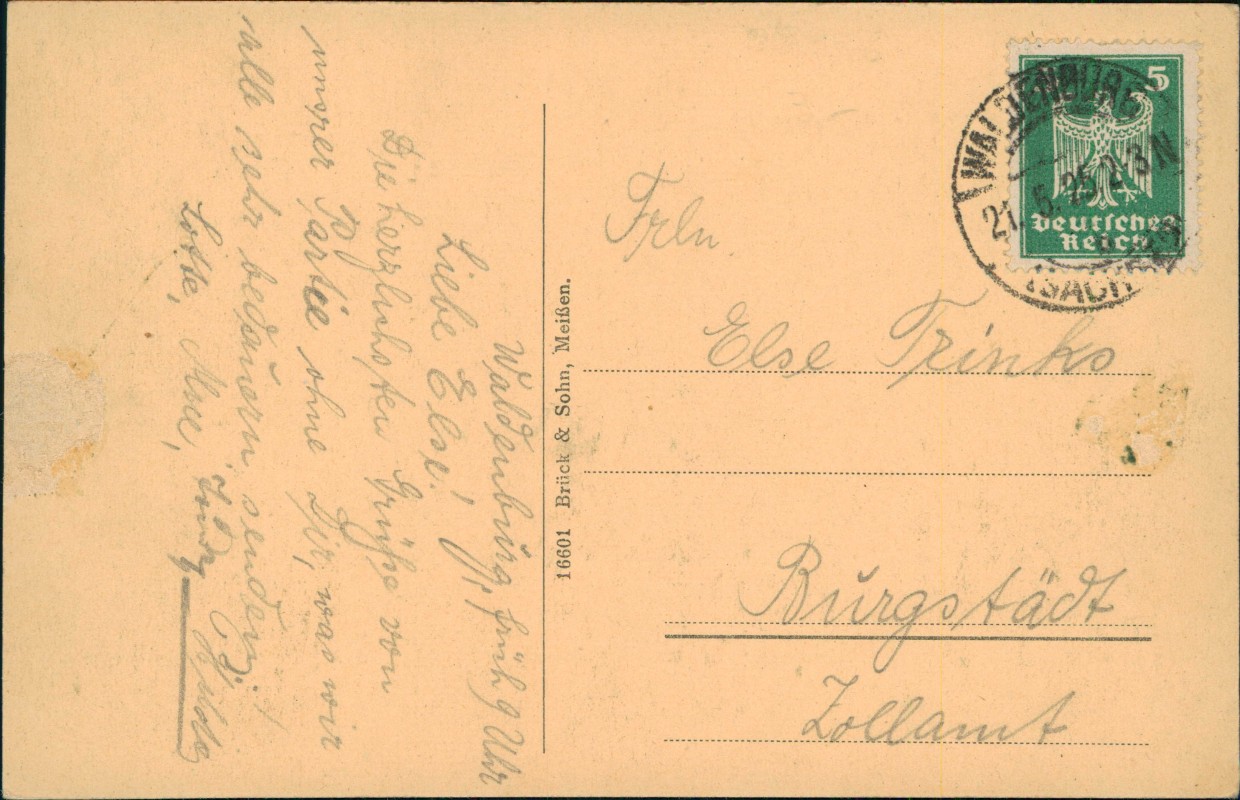 Waldenburg, früh 9 Uhr
Liebe Else!
Die herzlichsten Grüße von
unsrer Partie ohne Dir, was wir
alle sehr bedauern senden
Lotte, Hilde
16601 Brück & Sohn, Meißen.
5
Deutsches
Reich
WALDENBURG
21. 6. 25. 2-3 N
(SACHSEN)
Frln
Else Trinks
Burgstädt
Zollamt